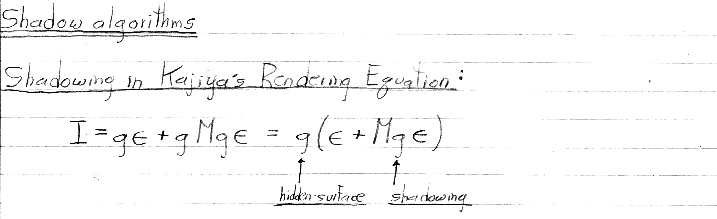 Shadow algorithms
Shadowing in Kajiya's Rendering Equation:
I = gϵ + gMgϵ = g(ϵ + Mgϵ)
hidden-surface shadowing